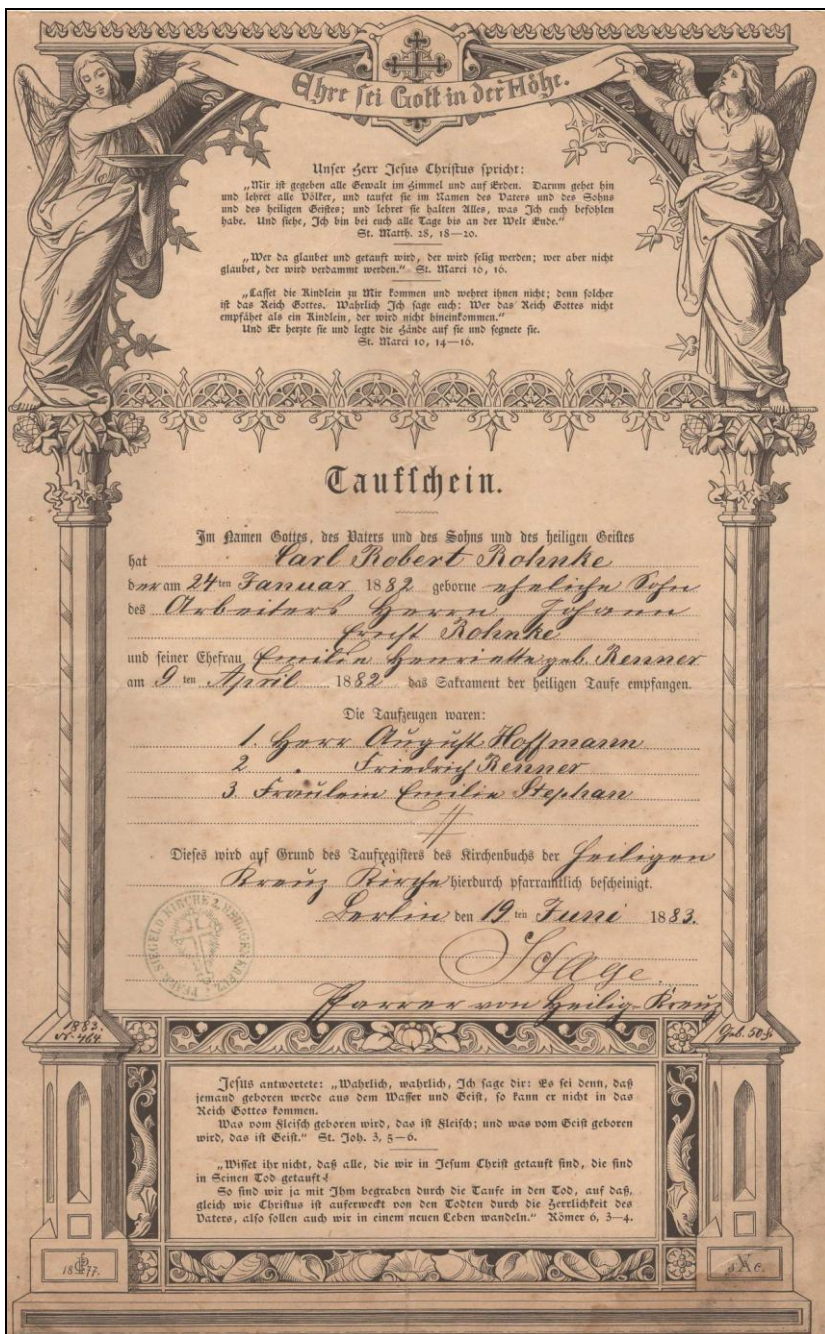 Ehre sei Gott in der Höhe.
Unser Herr Jesus Christus spricht:
„Mir ist gegeben alle Gewalt im Himmel und auf Erden. Darum gehet hin
und lehret alle Völker, und taufet sie im Namen des Vaters und des Sohns
und des heiligen Geistes; und lehret sie halten Alles, was Ich euch befohlen
habe. Und siehe, Ich bin bei euch alle Tage bis an der Welt Ende.“
St. Matth. 28, 18—20.
„Wer da glaubet und getauft wird, der wird selig werden; wer aber nicht
glaubet, der wird verdammt werden.“ St. Marci 16, 16.
„Lasset die Kindlein zu Mir kommen und wehret ihnen nicht; denn solcher
ist das Reich Gottes. Wahrlich Ich sage euch: Wer das Reich Gottes nicht
empfähet als ein Kindlein, der wird nicht hineinkommen.“
Und Er herzte sie und legte die Hände auf sie und segnete sie.
St. Marci 10, 14—16.
Taufschein.
Im Namen Gottes, des Vaters und des Sohns und des heiligen Geistes
hat Carl Robert Rohnke
der am 24ten Januar 1882 geborne eheliche Sohn
des Arbeiters Herrn Johann
Ernst Rohnke
und seiner Ehefrau Emilie Henriette geb. Renner
am 9 ten April 1882 das Sakrament der heiligen Taufe empfangen.
Die Taufzeugen waren:
1. Herr August Hoffmann
2 „ Friedrich Renner
3. Fräulein Emilie Stephan
Dieses wird auf Grund des Taufregisters des Kirchenbuchs der Heiligen
Kreuz Kirche hierdurch pfarramtlich bescheinigt.
Berlin den 19 ten Juni 1883.
Pfarrer von Heilig-Kreuz
1883.
Nr. 464
Geb. 50
Jesus antwortete: „Wahrlich, wahrlich, Ich sage dir: Es sei denn, daß
jemand geboren werde aus dem Wasser und Geist, so kann er nicht in das
Reich Gottes kommen.
Was vom Fleisch geboren wird, das ist Fleisch; und was vom Geist geboren
wird, das ist Geist.“ St. Joh. 3, 5—6.
„Wisset ihr nicht, daß alle, die wir in Jesum Christ getauft sind, die sind
in Seinen Tod getauft?
So sind wir ja mit Ihm begraben durch die Taufe in den Tod, auf daß,
gleich wie Christus ist auferweckt von den Todten durch die Herrlichkeit des
Vaters, also sollen auch wir in einem neuen Leben wandeln.“ Römer 6, 3—4.
18 77.